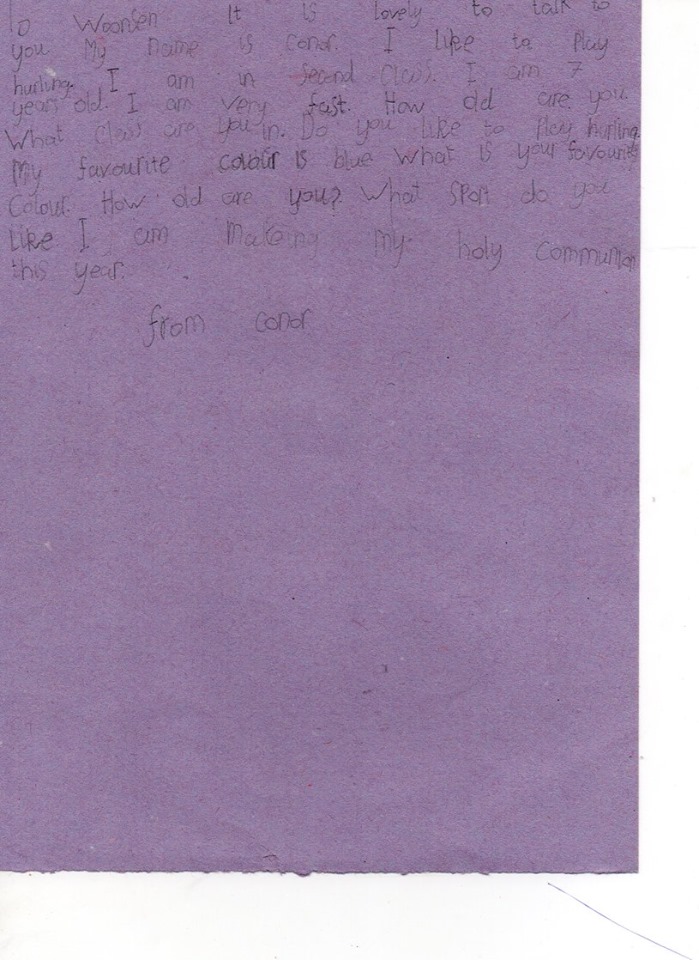 To Woonsen It is lovely to talk to
you My name is Conor. I like to Play
hurling. I am in Second Class. I am 7
years old. I am very fast. How old are you.
What Class are you in. Do you like to Play hurling.
My favourite colour is blue What is your favourite
Colour. How old are you? What Sport do you
Like I am Making my holy Communion
this year.
from conor